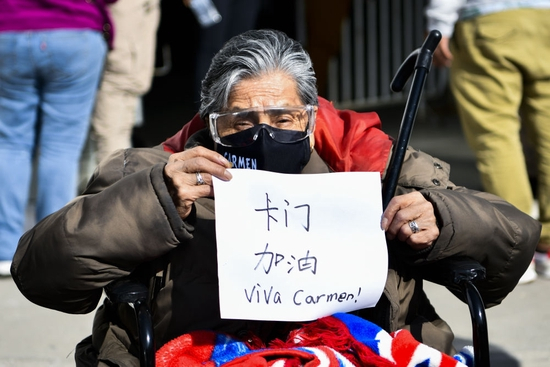 CARMEN
卡门
加油
Viva Carmen!